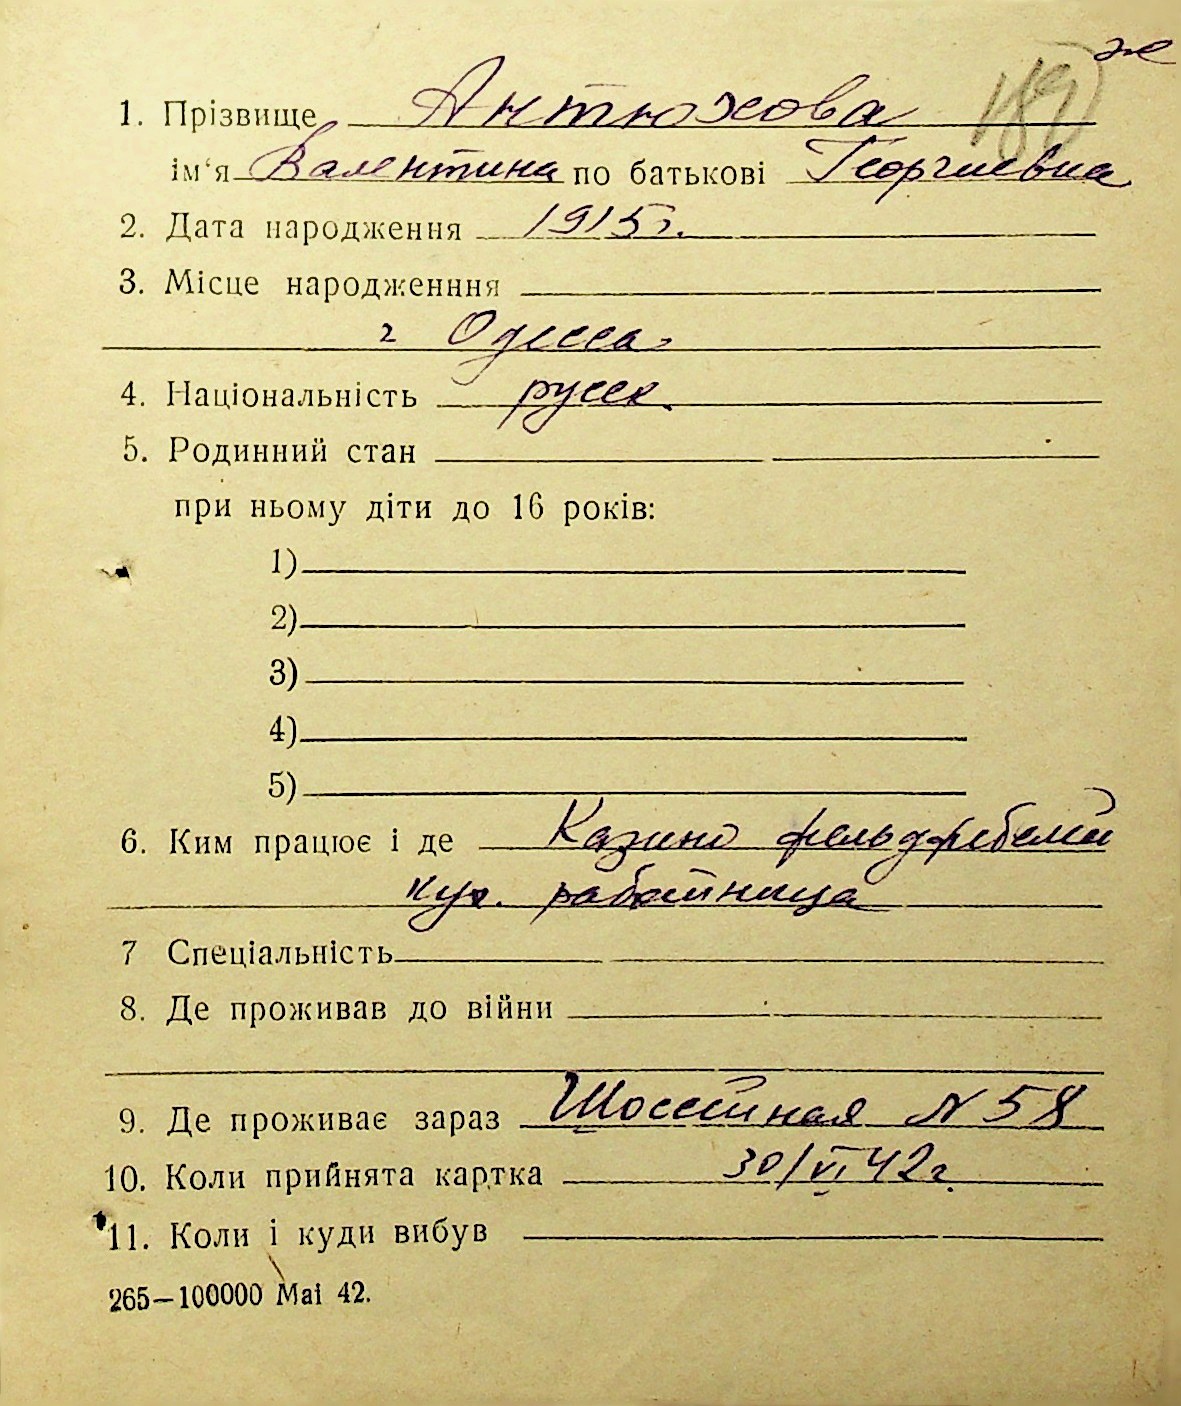 же
189
1. Прізвище Антюхова
ім‘я Валентина по батькові Георгиевна
2. Дата народження 1915г.
3. Місце народженння
г Одесса.
4. Національність русск.
5. Родинний стан
при ньому діти до 16 років:
1)
2)
3)
4)
5)
6. Ким працює і де Казино фельдфебелей
кух. работница
7 Спеціальність
8. Де проживав до війни
9. Де проживає зараз Шоссейная N 58
10. Коли прийнята картка 30/VI 42г.
11. Коли і куди вибув
265—100000 Mai 42.